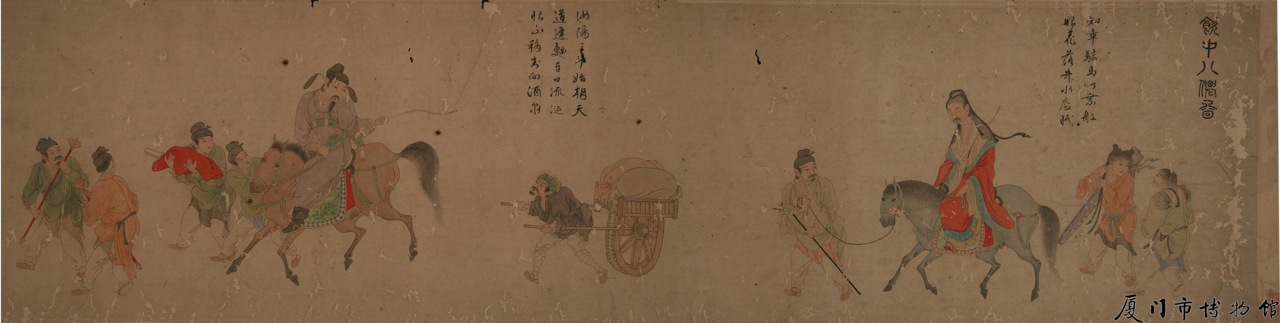 飲中八僊圖
知章騎馬似乘船
眼花落井水底眠
汝陽三斗始朝天
道逢麴車口流涎
恨不移封向酒泉
厦门市博物馆